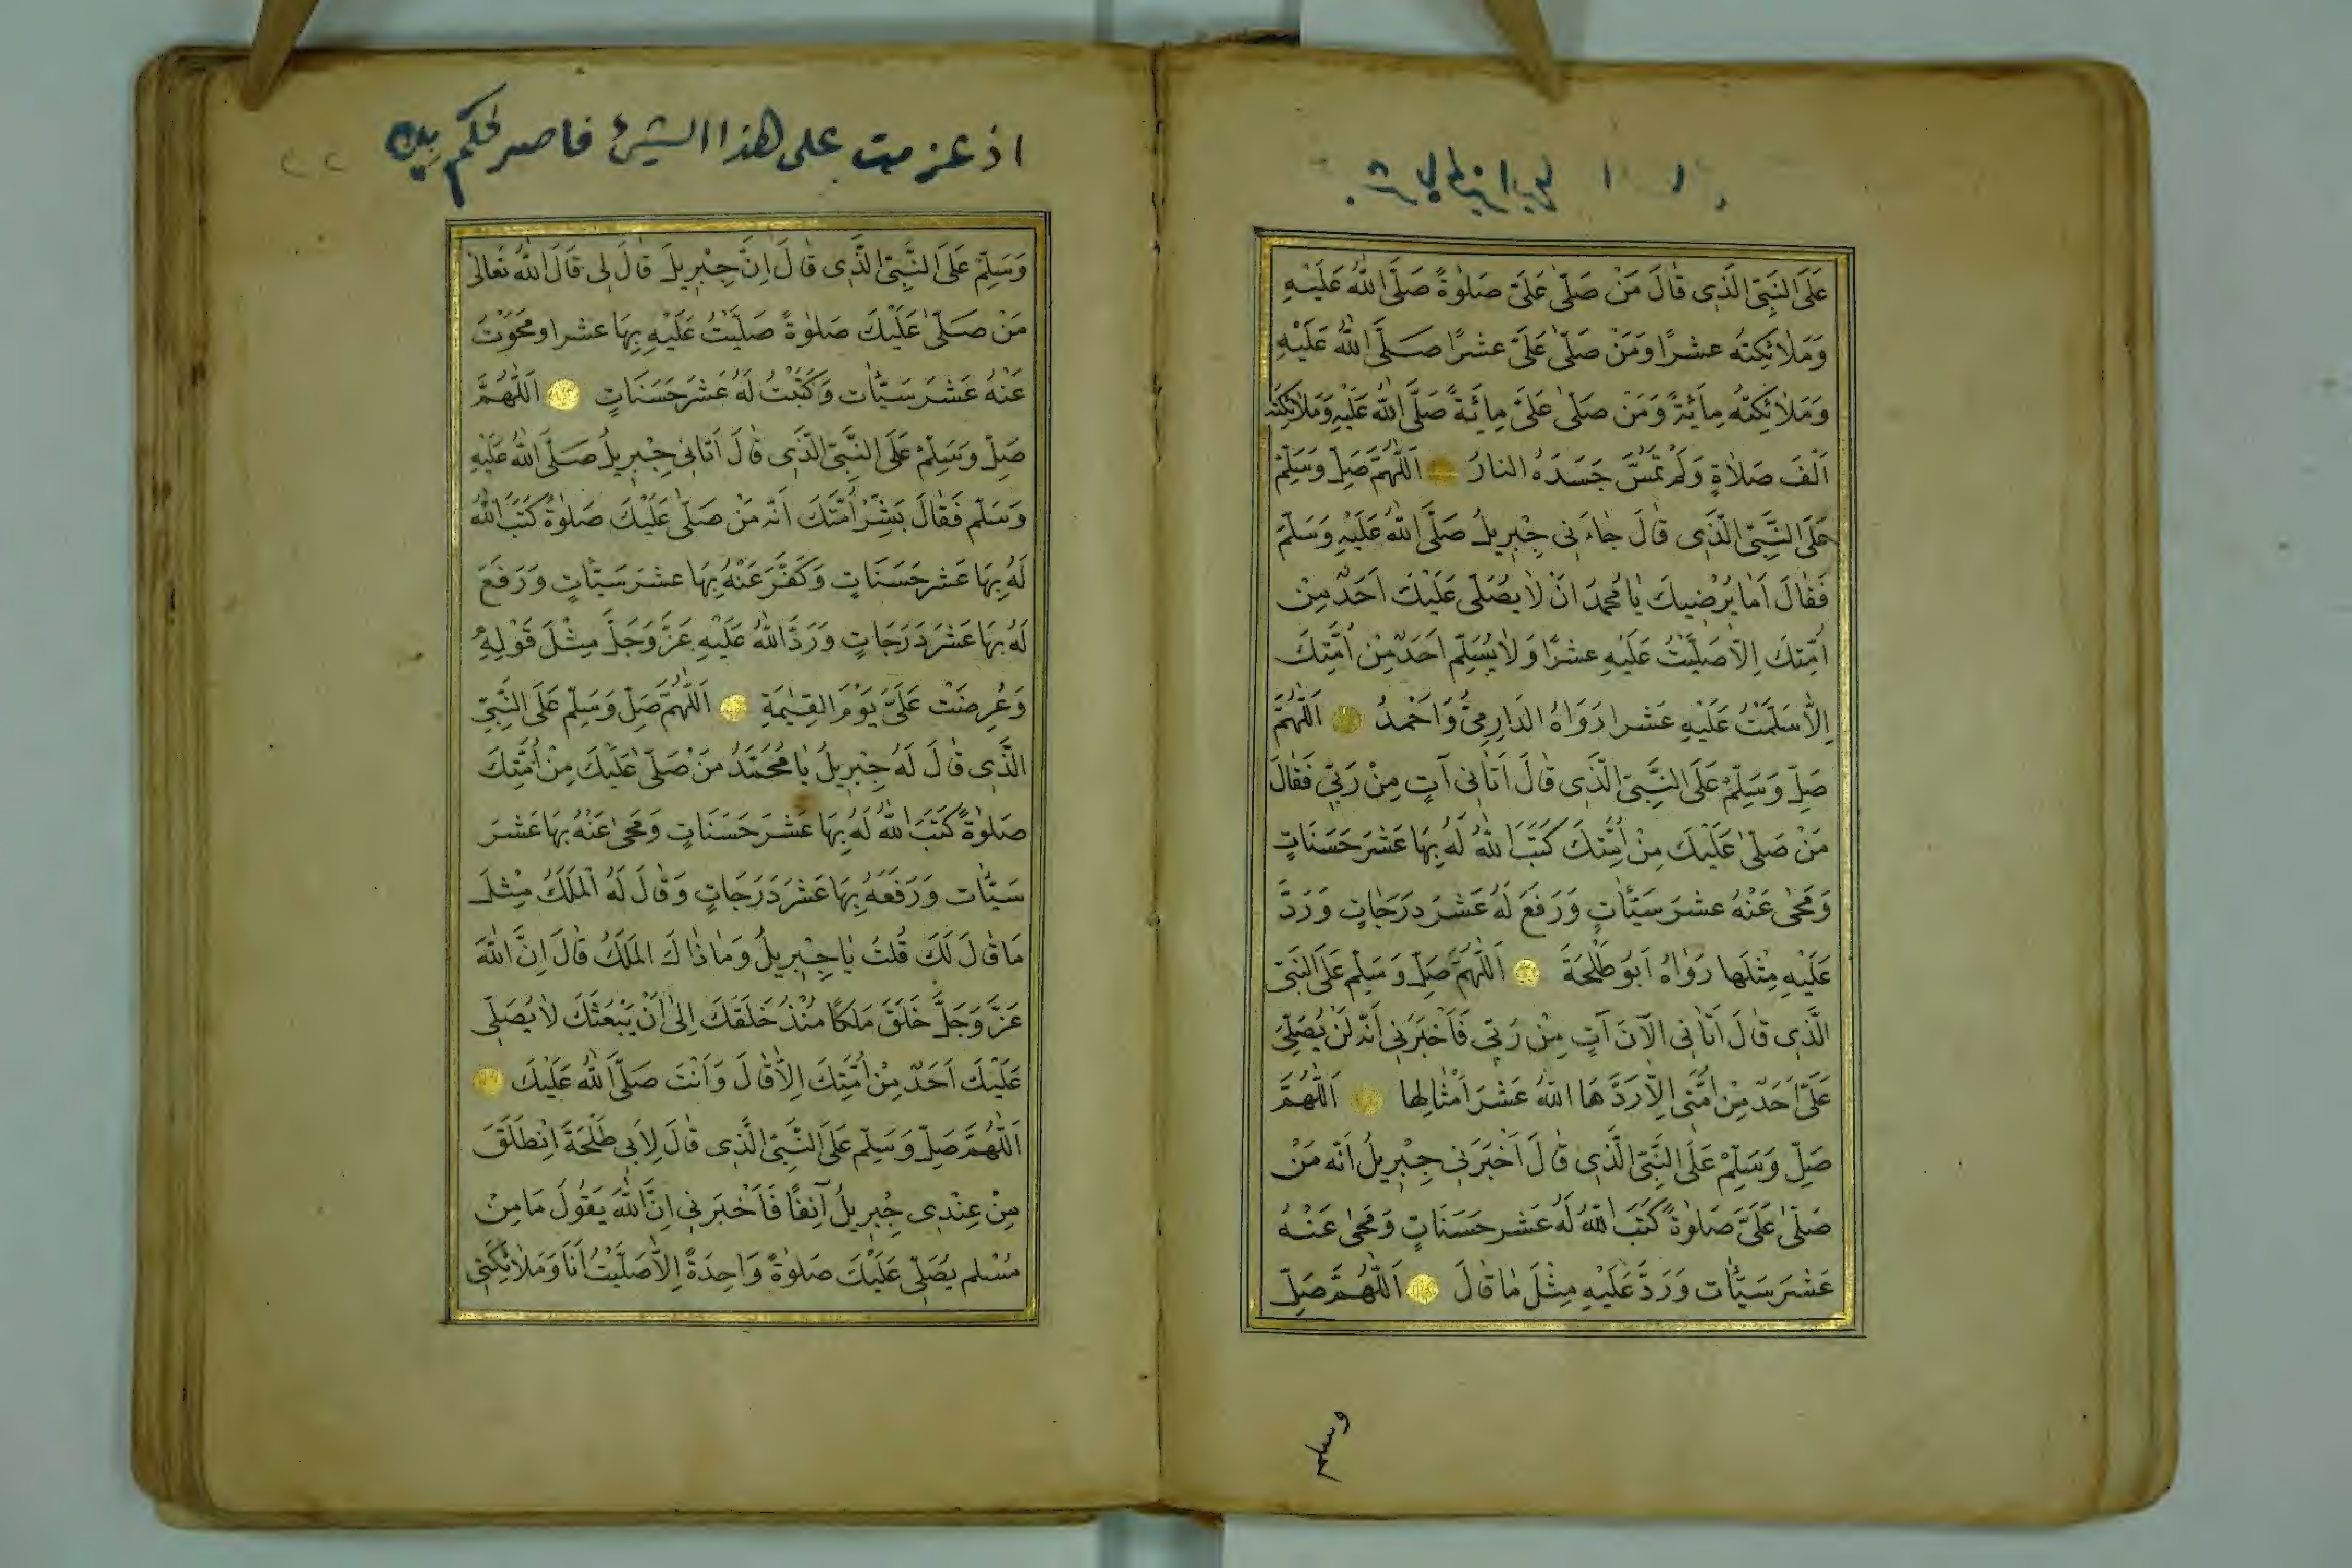 عَلَى النَّبِيِّ الَّذِى قَالَ مَنْ صَلّىٰ عَلَىَّ صَلٰوةً صَلَّى اللهُ عَلَيْهِ
وَمَلٰائِكتُه عشرًا وَمَنْ صَلّىٰ عَلَىَّ عشرًا صَلَّى اللهُ عَلَيْهِ
وَمَلٰائِكتُه مِأَئَةً وَمَن صَلّىٰ عَلَىَّ مِائَةً صَلَّى اللهُ عَلَيْهِ وَمَلٰائِكتُه
اَلْفَ صَلاٰةٍ وَلَمْ تَمَسَّ جَسَدَهُ النارُ اَللّٰهُمَّ صَلِّ وَسَلِّمْ
عَلَى النَّبِيِّ الَّذِى قٰالَ جٰاءَنِى جِبْرِيلُ صَلَّى اللهُ عَلَيْهِ وَسَلَّمَ
فَقٰالَ اَمٰا يُرْضِيكَ يٰا مُحَمدُ انْ لٰا يصُلّى عَلَيْكَ اَحَدٌ مِنْ
اُمَّتِكَ اِلّاَ صَلَّيْتُ عَلَيْهِ عشرًا وَلٰا يُسَلِّم اَحَدٌ مِنْ اُمَّتِكَ
اِلّاٰ سَلَّمْتُ عَلَيْهِ عَشرا رَوَاهُ الدَارِمِىُّ وَاَحْمدُ اَللّٰهُمَّ
صَلِّ وَسَلِّمْ عَلَى النَّبِيِّ الَّذِى قٰالَ اَتٰانِى آتٍ مِنْ رَبِّى فَقٰالَ
مَنْ صَلّىٰ عَلَيْكَ مِنْ اُمَّتِكَ كَتَبَ اللهُ لَهُ بِهَا عَشْرَ حَسَنَاتٍ
وَمَحىٰ عَنْهُ عشرَ سَيّئاتٍ وَرَفَعَ لَهُ عَشْرَ درَجٰاتٍ وَرَدَّ
عَلَيْهِ مِثْلَهَا رَوٰاهُ اَبُو طَلْحَةَ اَللّٰهُمَّ صَلِّ وَسَلِّم عَلَى النَبىّ
الَّذِى قٰالَ اَتٰانِى الآنَ آتٍ مِنْ رَبِّى فَاَخْبَرَنِى اَنّهُ لَنْ يُصَلِّىَ
عَلَىّ اَحَدٌ مِنْ اُمَّتِى اِلّاٰ رَدَّهَا اللهُ عَشْرَ اَمْثٰالِهٰا اَللّٰهُمَّ
صَلِّ وَسَلِّمْ عَلَى النَّبِيِّ الَّذِى قٰالَ اَخْبَرَنِى جِبْرِيلُ اَنّه مَنْ
صَلّىٰ عَلَىَّ صَلٰوةً كَتَبَ اللهُ لَهُ عَشر حَسَنَاتٍ وَمَحىٰ عَنْهُ
عَشْرَ سَيّئَات وَرَدَّ عَلَيْهِ مِثْلَ مٰا قٰالَ اَللّٰهُمَّ صَلِّ
وسلم
اذ عزمت على هذا الشيئ فاصبر لحكم
وَسَلِّمْ عَلَى النَّبِيِّ الَّذِى قٰالَ اِنَّ جِبْرِيلَ قٰالَ لِى قَالَ اللهُ تَعٰالىٰ
مَنْ صَلّىٰ عَلَيْكَ صَلٰوةً صَلَّيْتُ عَلَيْهِ بِهَا عشرا ومحَوْتُ
عَنْهُ عَشْرَ سَيّئَات وَكَتَبْتُ لَهُ عَشْرَ حَسَنَاتٍ اَللّٰهُمَّ
صَلِّ وَسَلِّمْ عَلَى النَّبِيِّ الَّذِى قٰالَ اَتَانِى جِبْرِيلُ صَلَّى اللهُ عَلَيْهِ
وَسَلّم فَقٰالَ بَشِّرْ اُمَّتَكَ اَنّه مَنْ صَلّىٰ عَلَيْكَ صَلٰوةً كَتَبَ اللهُ
لَهُ بِهَا عَشر حَسَنَاتٍ وَكَفَّرَ عَنْهُ بِهَا عشرَ سَيّئاتٍ وَرَفَعَ
لَهُ بِهَا عَشْرَ دَرَجَاتٍ وَرَدَّ اللهُ عَلَيْهِ عَزَّ وَجَلَّ مِثْلَ قَوْلِهِ
وَعُرِضَتْ عَلَىَّ يَوْمَ القِيٰمَةِ اَللّٰهُمَّ صَلِّ وَسَلِّم عَلَى النَّبِيِّ
الَّذِى قٰالَ لَهُ جِبْرِيلُ يٰا مُحَمَّدُ مَنْ صَلّىٰ عَلَيْكَ مِنْ اُمَّتِكَ
صَلٰوةً كَتَبَ اللهُ لَهُ بِهَا عَشْرَ حَسَنَاتٍ وَمَحىٰ عَنْهُ بِهَا عَشْرَ
سَيّئَات وَرَفَعَهُ بِهَا عَشْرَ دَرَجَاتٍ وَقٰالَ لَهُ الْمَلَكُ مِثْلَ
مَا قٰالَ لَكَ قُلتُ يٰا جِبْرِيلُ وَمٰا ذٰاكَ المَلَكُ قٰالَ اِنَّ اللهَ
عَزَّ وَجَلَّ خَلَقَ مَلَكًا مُنْذُ خَلَقَكَ اِلىٰ اَنْ يَبْعَثَكَ لٰا يُصَلِّى
عَلَيْكَ اَحَدٌ مِنْ اُمَّتِكَ اِلّاٰ قٰالَ وَاَنْتَ صَلَّى اللهُ عَلَيْكَ
اَللّٰهُمَّ صَلِّ وَسَلِّم عَلَى النَّبِيِّ الَّذِى قٰالَ لِاَبِى طَلْحَةَ اِنْطَلَقَ
مِنْ عِنْدِى جِبْرِيلُ آنِفًا فَاَخْبَرَنِى اِنَّ اللهَ يَقُولُ مَا مِنْ
مُسْلم يُصَلِّى عَلَيْكَ صَلٰوةً وَاحِدَةً اِلّاٰ صَلَّيْتُ اَنَا وَمَلٰائِكَتِى